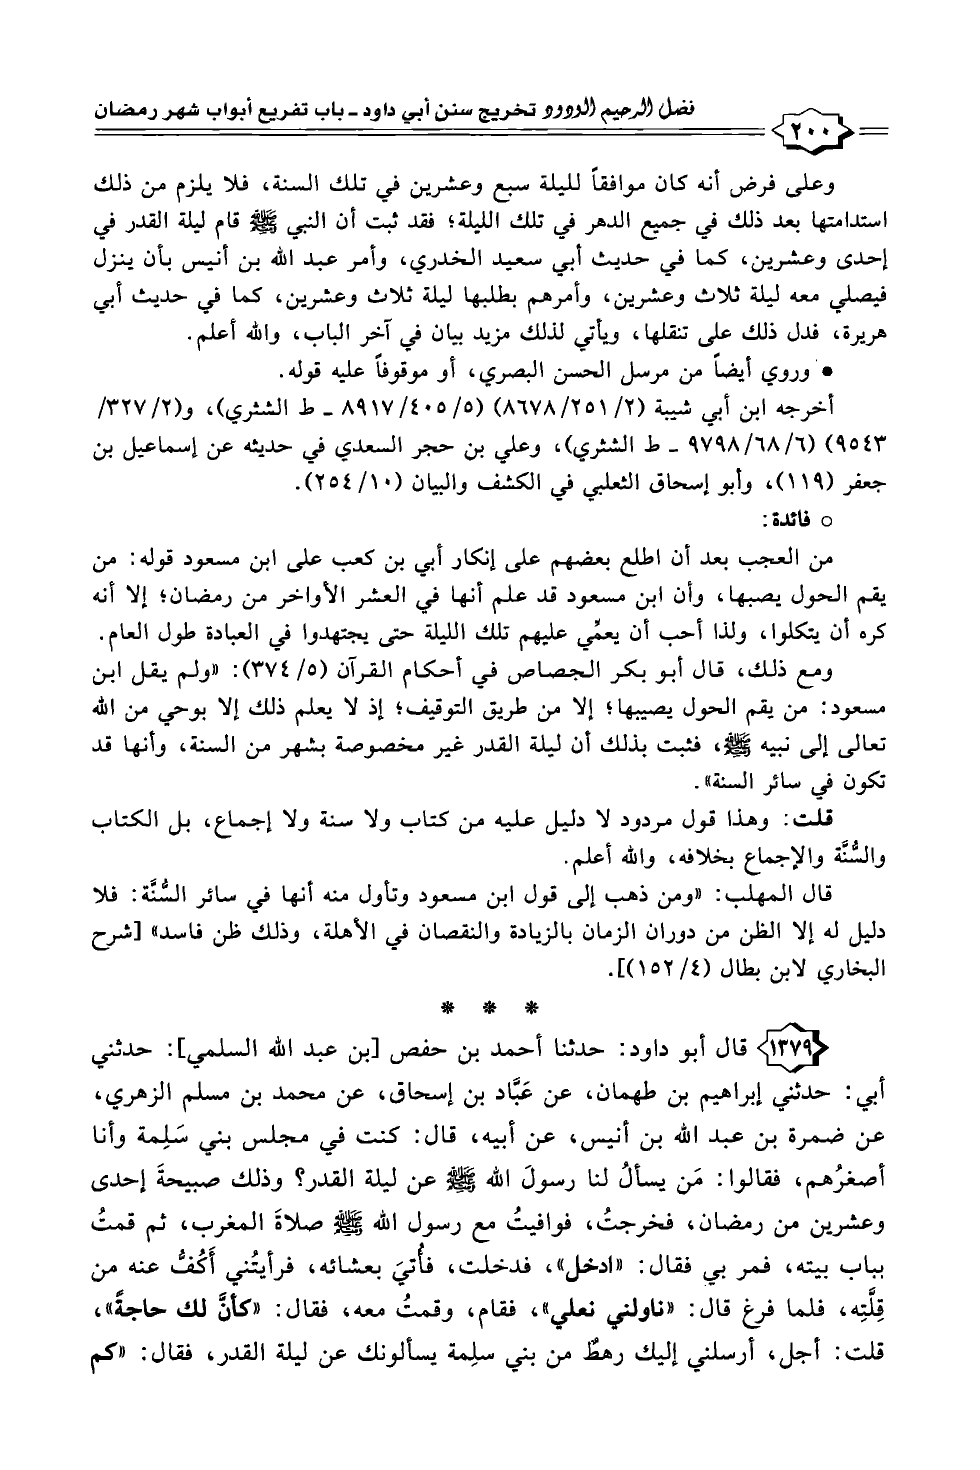 فضل الرحيم الودود تخريج سنن أبي داود ـ باب تفريع أبواب شهر رمضان
٢٠٠
وعلى فرض أنه كان موافقاً لليلة سبع وعشرين في تلك السنة، فلا يلزم من ذلك
استدامتها بعد ذلك في جميع الدهر في تلك الليلة؛ فقد ثبت أن النبي ﷺ قام ليلة القدر في
إحدى وعشرين، كما في حديث أبي سعيد الخدري، وأمر عبد الله بن أنيس بأن ينزل
فيصلي معه ليلة ثلاث وعشرين، وأمرهم بطلبها ليلة ثلاث وعشرين، كما في حديث أبي
هريرة، فدل ذلك على تنقلها، ويأتي لذلك مزيد بيان في آخر الباب، والله أعلم.
• وروي أيضاً من مرسل الحسن البصري، أو موقوفاً عليه قوله.
أخرجه ابن أبي شيبة (٨٦٧٨/٢٥١/٢) (٨٩١٧/٤٠٥/٥ ـ ط الشثري)، و(٣٢٧/٢/
٩٥٤٣) (٩٧٩٨/٦٨/٦ ـ ط الشثري)، وعلي بن حجر السعدي في حديثه عن إسماعيل بن
جعفر (١١٩)، وأبو إسحاق الثعلبي في الكشف والبيان (٢٥٤/١٠).
○ فائدة:
من العجب بعد أن اطلع بعضهم على إنكار أبي بن كعب على ابن مسعود قوله: من
يقم الحول يصبها، وأن ابن مسعود قد علم أنها في العشر الأواخر من رمضان؛ إلا أنه
كره أن يتكلوا، ولذا أحب أن يعمِّي عليهم تلك الليلة حتى يجتهدوا في العبادة طول العام.
ومع ذلك، قال أبو بكر الجصاص في أحكام القرآن (٣٧٤/٥): «ولم يقل ابن
مسعود: من يقم الحول يصيبها؛ إلا من طريق التوقيف؛ إذ لا يعلم ذلك إلا بوحي من الله
تعالى إلى نبيه ﷺ، فثبت بذلك أن ليلة القدر غير مخصوصة بشهر من السنة، وأنها قد
تكون في سائر السنة».
قلت: وهذا قول مردود لا دليل عليه من كتاب ولا سنة ولا إجماع، بل الكتاب
والسُّنَّة والإجماع بخلافه، والله أعلم.
قال المهلب: «ومن ذهب إلى قول ابن مسعود وتأول منه أنها في سائر السُّنَّة: فلا
دليل له إلا الظن من دوران الزمان بالزيادة والنقصان في الأهلة، وذلك ظن فاسد» [شرح
البخاري لابن بطال (١٥٢/٤)].
* * *
١٣٧٩ قال أبو داود: حدثنا أحمد بن حفص [بن عبد الله السلمي]: حدثني
أبي: حدثني إبراهيم بن طهمان، عن عَبَّاد بن إسحاق، عن محمد بن مسلم الزهري،
عن ضمرة بن عبد الله بن أنيس، عن أبيه، قال: كنت في مجلس بني سَلِمة وأنا
أصغرُهم، فقالوا: مَن يسألُ لنا رسولَ الله ﷺ عن ليلة القدر؟ وذلك صبيحةَ إحدى
وعشرين من رمضان، فخرجتُ، فوافيتُ مع رسول الله ﷺ صلاةَ المغرب، ثم قمتُ
بباب بيته، فمر بي فقال: «ادخل»، فدخلت، فأُتيَ بعشائه، فرأيتُني أَكُفُّ عنه من
قِلَّتِه، فلما فرغ قال: «ناولني نعلي»، فقام، وقمتُ معه، فقال: «كأنَّ لك حاجةً»،
قلت: أجل، أرسلني إليك رهطٌ من بني سلِمة يسألونك عن ليلة القدر، فقال: «كم